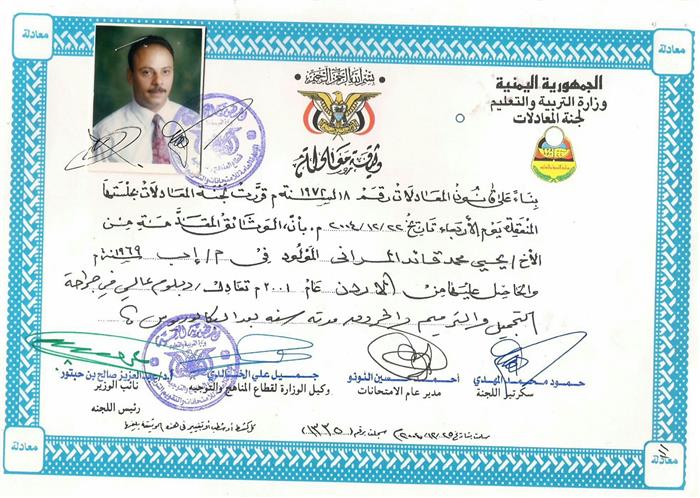 معادلة
معادلة
بسم الله الرحمن الرحيم
الجمهورية اليمنية
وزارة التربية والتعليم
لجنة المعادلات
وثيقة معادلة
بناءً على قانون المعادلات رقم ١٨ لسنة ١٩٧٢م قررت لجنة المعادلات بجلستها
المنعقدة يوم الأربعاء تاريخ ٢٠٠٤/١٢/٢٢م. بأن الوثائق المقدمة من
الأخ/ يحيى محمد قائد المراني المولود في م/ إب سنة ١٩٦٩م
والحاصل عليها من الأردن عام ٢٠٠١م تعادل/ دبلوم عالي في جراحة
التجميل والترميم والحروق مدته سنه بعد البكالوريوس
حمود محمد المهدي
سكرتير اللجنة
أحمد حسين النونو
مدير عام الامتحانات
جميل علي الخالدي
وكيل الوزارة لقطاع المناهج والتوجيه
أ.د/عبدالعزيز صالح بن حبتور
نائب الوزير
رئيس اللجنة
سجلت بتاريخ ٢٠٠٤/١٢/٢٥م سجلت برقم (١٣٣٥)
كل كشط أو شطب أو تغيير في هذه الوثيقة يلغيها
معادلة